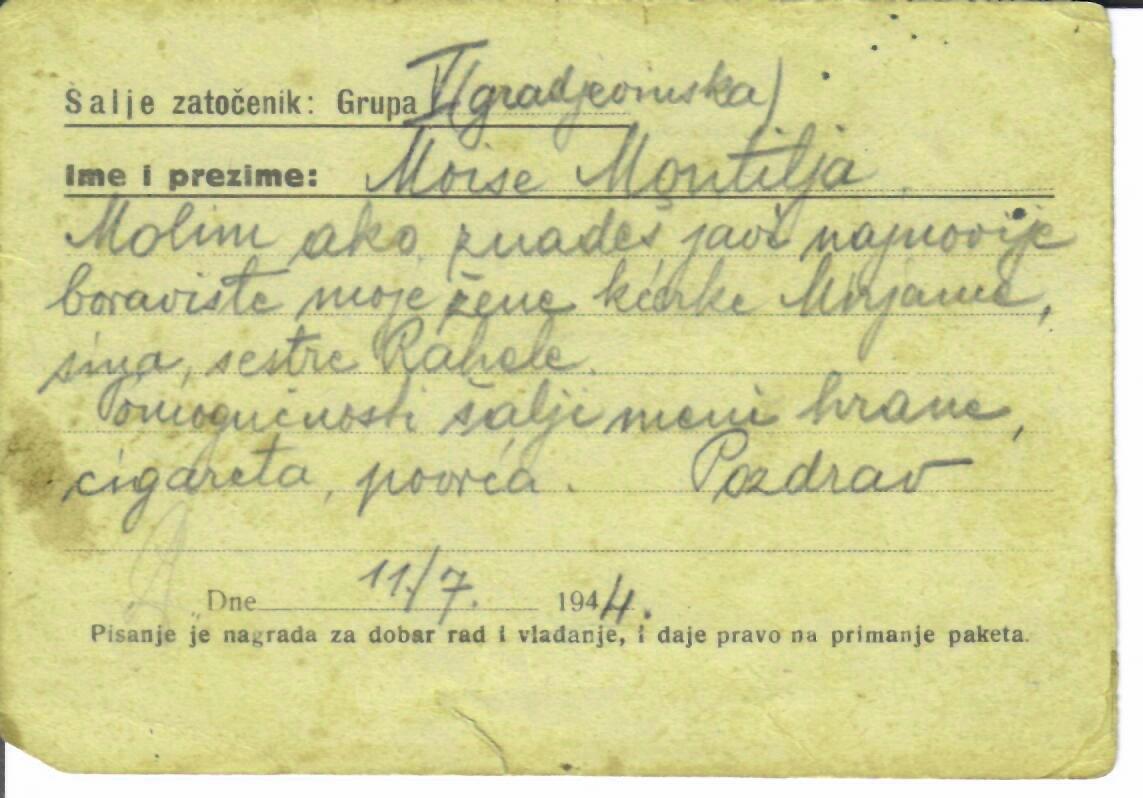 Šalje zatočenik: Grupa V (gradjevinska)
Ime i prezime: Moise Montilja
Molim ako znadeš javi najnovije
boravište moje žene kćerke Mirjame,
sina, sestre Rahele.
Pomogućnosti šalji meni hrane,
cigareta, povrća. Pozdrav
Dne 11/7. 1944.
Pisanje je nagrada za dobar rad i vladanje, i daje pravo na primanje paketa.